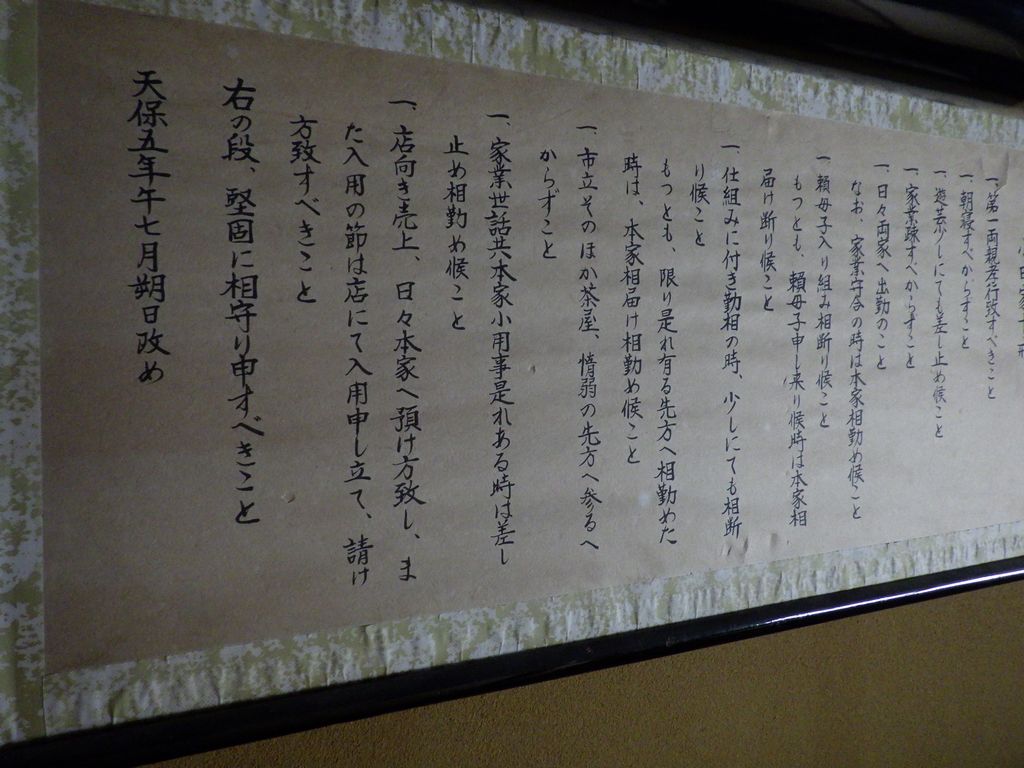 一、第一両親孝行致すべきこと
一、朝寝すべからずこと
一、遊芸少しにても差し止め候こと
一、家業疎すべからずこと
一、日々両家へ出勤のこと
なお、家業守合の時は本家相勤め候こと
一、頼母子入り組み相断り候こと
もっとも、頼母子申し来り候時は本家相
届け断り候こと
一、仕組みに付き勤相の時、少しにても相断
り候こと
もっとも、限り是れ有る先方へ相勤めた
時は、本家相届け相勤め候こと
一、市立そのほか茶屋、惰弱の先方へ参るへ
からずこと
一、家業世話共本家小用事是れある時は差し
止め相勤め候こと
一、店向き売上、日々本家へ預け方致し、ま
た入用の節は店にて入用申し立て、請け
方致すべきこと
右の段、堅固に相守り申すべきこと
天保五年午七月朔日改め